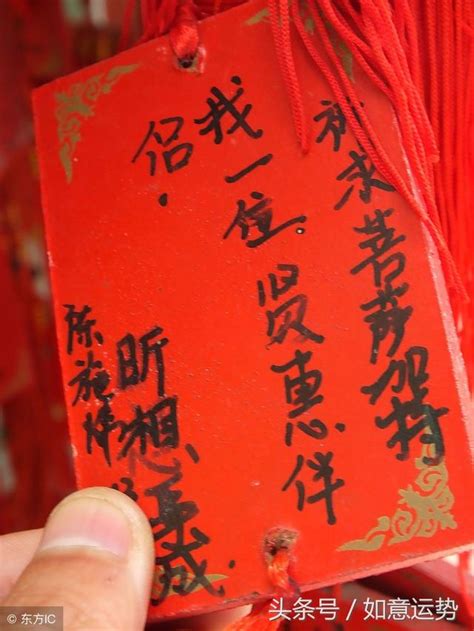 祈求菩萨加持
我一位.贤惠伴
侣.
昕想 成.
陈施
© 东方IC
头条号 / 如意运势